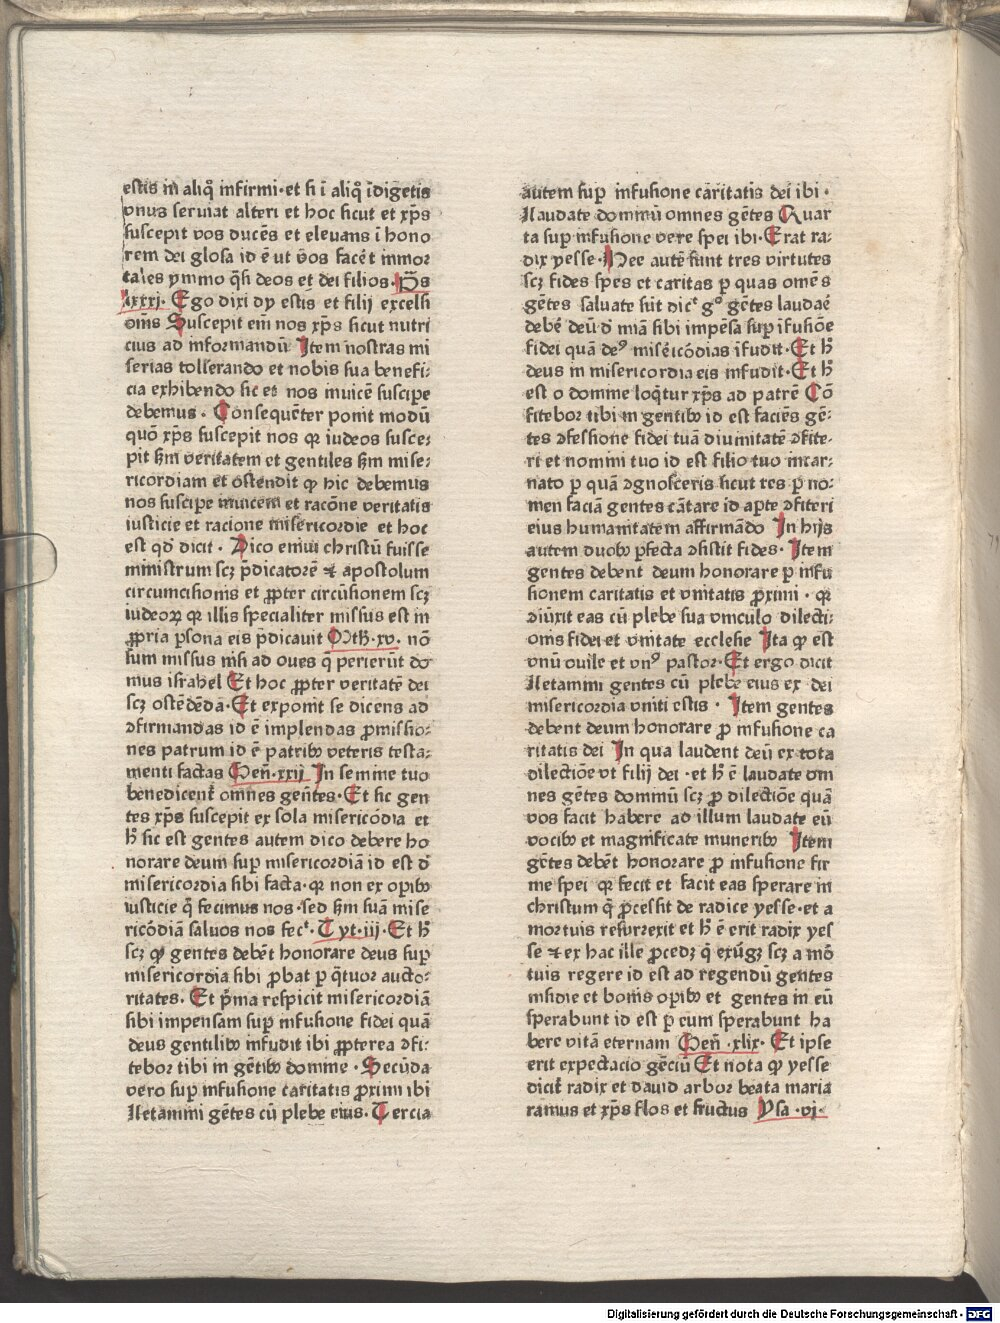 estis in aliq̄ infirmi·et si ī aliq̄ īdigetis
vnus seruiat alteri et hoc sicut et xp̄s
suscepit vos ducēs et eleuans ī hono
rem dei glosa id ē ut vos facēt immor
tales ymmo q̄si deos et dei filios·Ps̄
lxxxj· Ego dixi dy estis et filij excelsi
om̄s Suscepit em̄ nos xp̄s sicut nutri
cius ad informandū Item nostras mi
serias tollerando et nobis sua benefi⸗
cia exhibendo sic et nos inuicē suscipe
debemus· Consequēter ponit modū
quō xp̄s suscepit nos qꝛ iudeos susce⸗
pit ẜm veritatem et gentiles ẜm mise⸗
ricordiam et ostendit ꝙ hic debemus
nos suscipe inuicem et racōne veritatis
iusticie et racione misericordie et hoc
est qd̄ dicit· Dico enim christū fuisse
ministrum scꝫ p̄dicatorē ⁊ apostolum
circumcisionis et ꝓpter circūsionem scꝫ
iudeoꝝ qꝛ illis specialiter missus est in
ꝓpria ꝑsona eis p̄dicauit Mth̄·xv· nō
sum missus nisi ad oues q̄ perierūt do
mus israhel Et hoc ꝓpter veritatē dei
scꝫ ostēdēda·Et exponit se dicens ad
ꝯfirmandas id ē implendas ꝓmissio⸗
nes patrum id ē patribꝫ veteris testa⸗
menti factas Gen̄·xxij In semine tuo
benedicent̄ omnes gen̄tes·Et sic gen
tes xp̄s suscepit ex sola misericōdia et
h̄ sic est gentes autem dico debere ho
norare deum suꝑ misericordiā id est d̄
misericordia sibi facta·qꝛ non ex oꝑibꝫ
iusticie q̄ fecimus nos·sed ẜm suā mise
ricōdiā saluos nos fec̄·Tyt·iij·Et h̄
scꝫ ꝙ gentes debēt honorare deus suꝑ
misericordia sibi ꝓbat ꝑ q̄tuor aucto⸗
ritates. Et p̄ma respicit misericordiā
sibi impensam suꝑ infusione fidei quā
deus gentilibꝫ infudit ibi ꝓpterea ꝯfi⸗
tebor tibi in gētibꝫ domine·Secūda
vero suꝑ infusione caritatis ꝓximi ibi
Iletamini gētes cū plebe eius·Tercia
autem suꝑ infusione caritatis dei ibi·
Ilaudate dominū omnes gētes Quar
ta suꝑ infusione vere spei ibi·Erat ra⸗
dix yesse·Hee autē sunt tres virtutes
scꝫ fides spes et caritas ꝑ quas omēs
gētes saluate sūt dic̄ gº gētes laudaē
debē deū d̄ miā sibi impēsa suꝑ īfusiōe
fidei quā deꝰ misēricōdias īfudit·Et h̄
deus in misericordia eis infudit·Et h̄
est o domine loq̄tur xp̄s ad patrē Cō
fitebor tibi in gentibꝫ id est faciēs gē⸗
tes ꝯfessione fidei tuā diuinitatē ꝯfite⸗
ri et nomini tuo id est filio tuo incar⸗
nato ꝑ quā ꝯgnosceris sicut res ꝑ no⸗
men faciā gentes cātare id aꝑte ꝯfiteri
eius humanitatem affirmādo In hijs
autem duobꝫ ꝑfecta ꝯsistit fides·Item
gentes debent deum honorare ꝑ infu
sionem caritatis et vnitatis ꝓximi·qꝛ
ꝯiūxit eas cū plebe sua vinculo dilecti⸗
onis fidei et vnitate ecclesie Ita ꝙ est
vnū ouile et vnꝰ pastor·Et ergo dicit
Iletamini gentes cū plebe eius ex dei
misericordia vniti estis· Item gentes
debent deum honorare ꝓ infusione ca
ritatis dei In qua laudent deū ex tota
dilectiōe vt filij dei·et h̄ ē laudate om
nes gētes dominū scꝫ ꝓ dilectiōe quā
vos facit habere ad illum laudate eū
vocibꝫ et magnificate muneribꝫ Item
gētes debēt honorare ꝓ infusione fir
me spei qꝛ fecit et facit eas sperare in
christum q̄ ꝓcessit de radice yesse·et a
mortuis resurrexit et h̄ ē erit radix yes
se ⁊ ex hac ille ꝓcedꝫ q̄ exūgꝫ scꝫ a moꝛ
tuis regere id est ad regendū gentes
insidie et bonis oꝑibꝫ et gentes in eū
sperabunt id est ꝑ eum sperabunt ha
bere vitā eternam Gen̄·xlix·Et ipse
erit expectacio gēciū Et nota ꝙ yesse
dicit̄ radix et dauid arbor beata maria
ramus et xp̄s flos et fructus Ysa·vj·
Digitalisierung gefördert durch die Deutsche Forschungsgemeinschaft - DFG